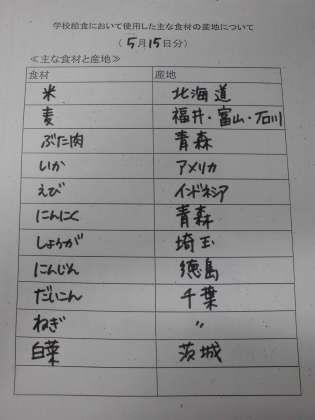 学校給食において使用した主な食材の産地について
(5月15日分)
≪主な食材と産地≫
食材 産地
米 北海道
麦 福井・富山・石川
ぶた肉 青森
いか アメリカ
えび インドネシア
にんにく 青森
しょうが 埼玉
にんじん 徳島
だいこん 千葉
ねぎ 〃
白菜 茨城